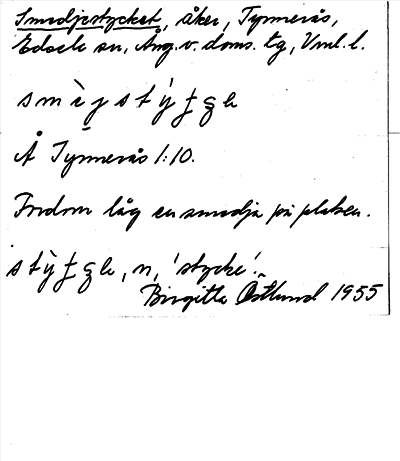 Smedjestycket, åker, Tynnerås,
Edsele sn, Ång. v. doms. tg, Vnl. l.
smèjstỳt̠ʒe
Å Tynnerås 1:10.
Fordom låg en smedja på platsen.
stỳt̠ʒe, n, 'stycke'.
Birgitta Östlund 1955